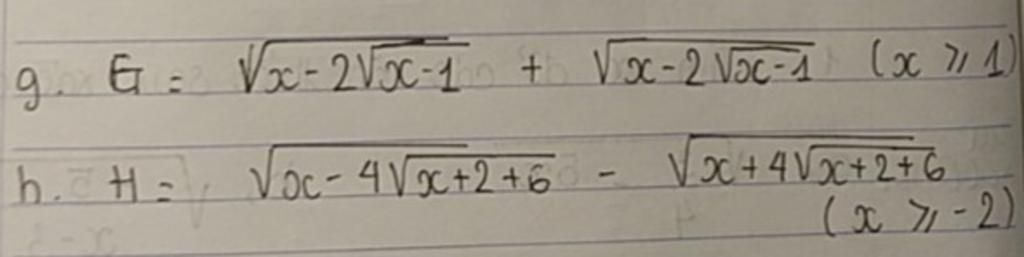 g. G = √(x-2√(x-1)) + √(x-2√(x-1)) (x ⩾ 1)
h. H = √(x-4√(x+2+6)) - √(x+4√(x+2+6))
(x ⩾ -2)